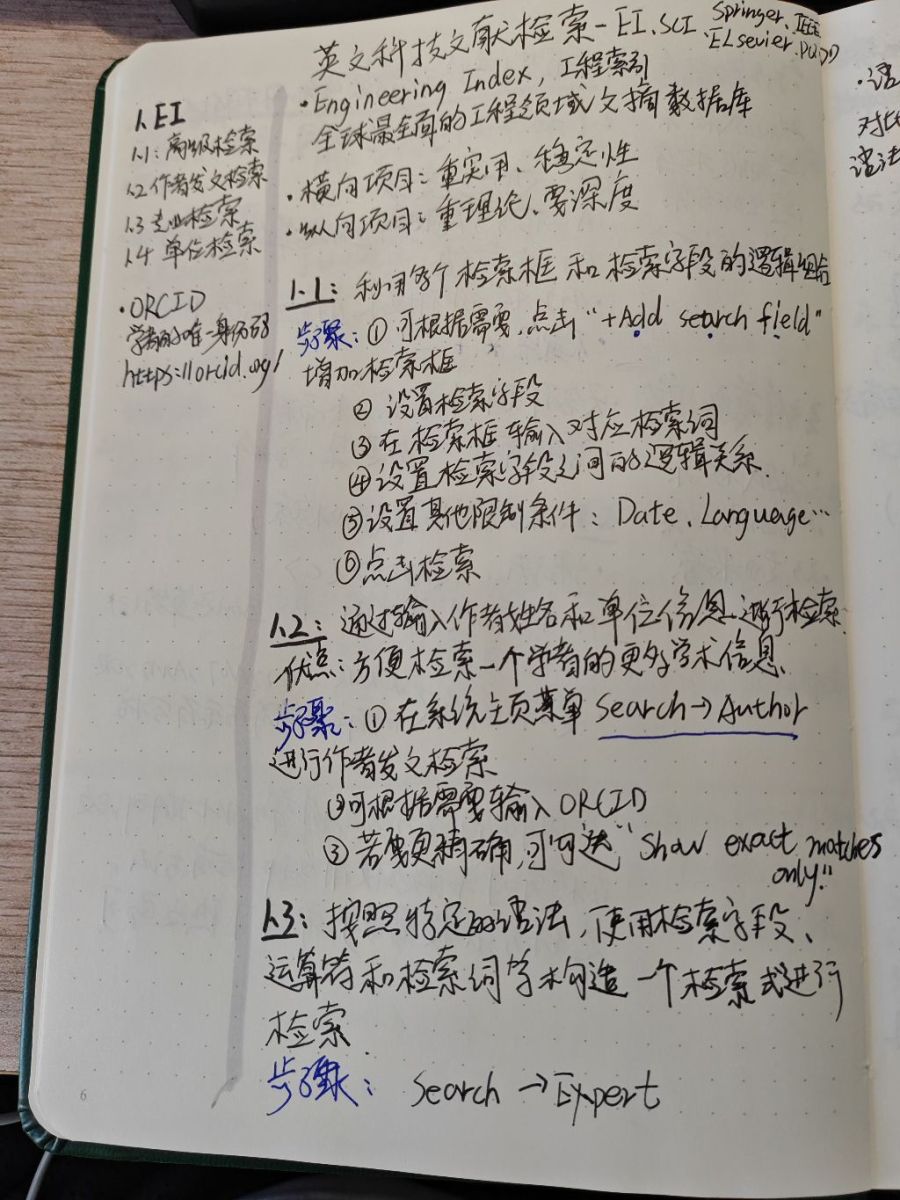 英文科技文献检索-EI、SCI、Springer、IEEE
Elsevier、PQDD
1、EI
1.1：高级检索
1.2 作者发文检索
1.3 专业检索
1.4 单位检索
·ORCID
学者的唯一身份码
https://orcid.org/
·Engineering Index，工程索引
全球最全面的工程领域文摘数据库
·横向项目：重实用、稳定性
·纵向项目：重理论、要深度
1.1：利用多个检索框和检索字段的逻辑组合
步骤：①可根据需要，点击“+Add search field”
增加检索框
②设置检索字段
③在检索框输入对应检索词
④设置检索字段之间的逻辑关系
⑤设置其他限制条件：Date、Language…
⑥点击检索
1.2：通过输入作者姓名和单位信息进行检索
优点：方便检索一个学者的更多学术信息
步骤：①在系统主页菜单 Search→Author
进行作者发文检索
②可根据需要输入ORCID
③若要更精确，可勾选“Show exact matches
only”
1.3：按照特定的语法，使用检索字段、
运算符和检索词等构造一个检索式进行
检索
步骤：Search→Expert
6
对比
语法